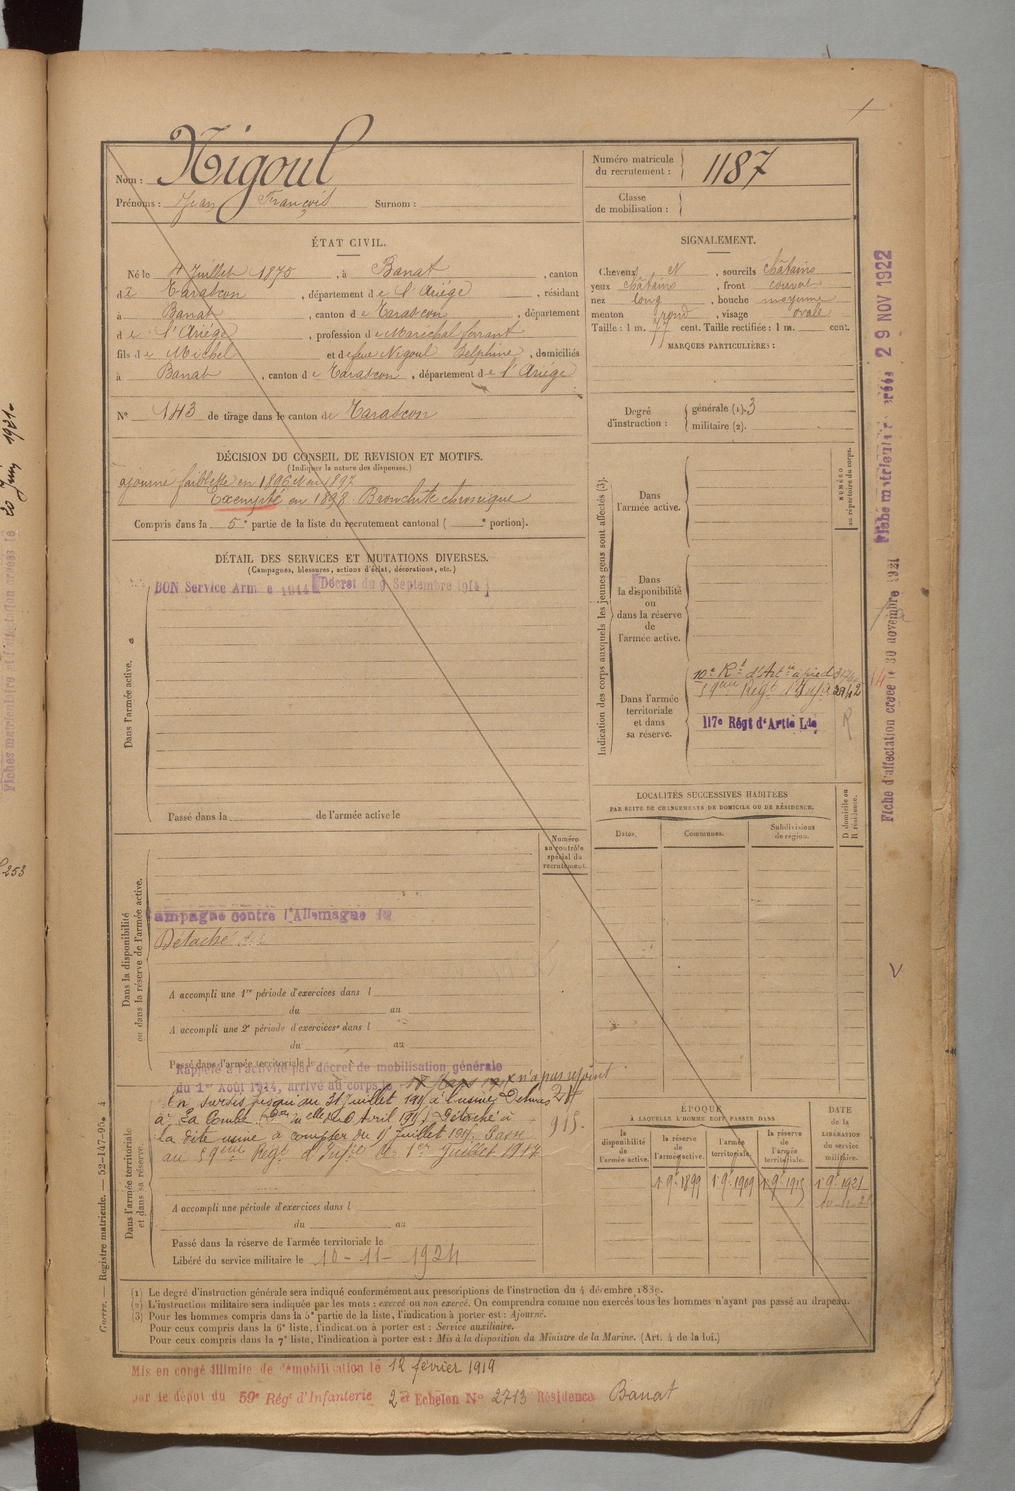 Nom : Nigoul
Prénoms : Jean François Surnom :
Numéro matricule du recrutement : 1187
Classe de mobilisation :
ÉTAT CIVIL.
Né le 4 Juillet 1875, à Banat, canton
de Tarascon, département de l'Ariège, résidant
à Banat, canton de Tarascon, département
de l'Ariège, profession de Maréchal ferrant
fils de Michel et de feue Nigoul Delphine, domiciliés
à Banat, canton de Tarascon, département de l'Ariège
N° 143 de tirage dans le canton de Tarascon
SIGNALEMENT.
Cheveux N, sourcils châtains
yeux châtains, front couvert
nez long, bouche moyenne
menton rond, visage ovale
Taille : 1 m. 77 cent. Taille rectifiée : 1 m. cent.
MARQUES PARTICULIÈRES :
Degré d'instruction : générale (1). 3
militaire (2).
DÉCISION DU CONSEIL DE REVISION ET MOTIFS.
(Indiquer la nature des dispenses.)
ajourné faiblesse en 1896 et en 1897
Exempté en 1898. Bronchite chronique
Compris dans la 5e partie de la liste du recrutement cantonal ( e portion).
DÉTAIL DES SERVICES ET MUTATIONS DIVERSES.
(Campagnes, blessures, actions d'éclat, décorations, etc.)
BON Service Armé 1914 (Décret du 9 Septembre 1914)
Dans l'armée active.
Passé dans la de l'armée active le
Numéro au contrôle spécial du recrutement.
Dans la disponibilité ou dans la réserve de l'armée active.
Campagne contre l'Allemagne du
Détaché
A accompli une 1re période d'exercices dans l
du au
A accompli une 2e période d'exercices dans l
du au
Passé dans l'armée territoriale le
Rappelé à l'activité par décret de mobilisation générale
du 1er Août 1914, arrivé au corps le n'a pas rejoint
En sursis jusqu'au 31 Juillet 191 à l'usine
à La Combe Avril 191 Détaché à
la dite usine à compter du 1 Juillet 191 Passé
au 59ème Régt d'Infie le 1er Juillet 1917
Dans l'armée territoriale et dans sa réserve
A accompli une période d'exercices dans l
du au
Passé dans la réserve de l'armée territoriale le
Libéré du service militaire le 10-11-1924
Indication des corps auxquels les jeunes gens sont affectés (3).
NUMÉRO au répertoire du corps.
Dans l'armée active.
Dans la disponibilité ou dans la réserve de l'armée active.
Dans l'armée territoriale et dans sa réserve.
10e Rt d'Artie à pied
59ème Régt d'Infie
117e Régt d'Artie Lde
LOCALITÉS SUCCESSIVES HABITÉES
PAR SUITE DE CHANGEMENTS DE DOMICILE OU DE RÉSIDENCE.
Dates. Communes. Subdivisions de région. D domicile ou R résidence.
ÉPOQUE
À LAQUELLE L'HOMME DOIT PASSER DANS
la disponibilité de l'armée active. la réserve de l'armée active. l'armée territoriale. la réserve de l'armée territoriale. DATE de la LIBÉRATION du service militaire.
1 9e 1899 1 9e 1909 1 9e 1915 1 9e 1921
(1) Le degré d'instruction générale sera indiqué conformément aux prescriptions de l'instruction du 4 décembre 1889.
(2) L'instruction militaire sera indiquée par les mots : exercé ou non exercé. On comprendra comme non exercés tous les hommes n'ayant pas passé au drapeau.
(3) Pour les hommes compris dans la 5e partie de la liste, l'indication à porter est : Ajourné.
Pour ceux compris dans la 6e liste, l'indication à porter est : Service auxiliaire.
Pour ceux compris dans la 7e liste, l'indication à porter est : Mis à la disposition du Ministre de la Marine. (Art. 4 de la loi.)
Mis en congé illimité de démobilisation le 12 février 1919
par le dépôt du 59e Régt d'Infanterie 2e Echelon N° 2713 Résidence Banat
Guerre. — Registre matricule. — 52-147-95.
Fiche matricule créée 29 NOV 1922
Fiche d'affectation créée le 30 novembre 1921
Fiches matriculaire et d'affectation créées le 20 Juin 1921
253